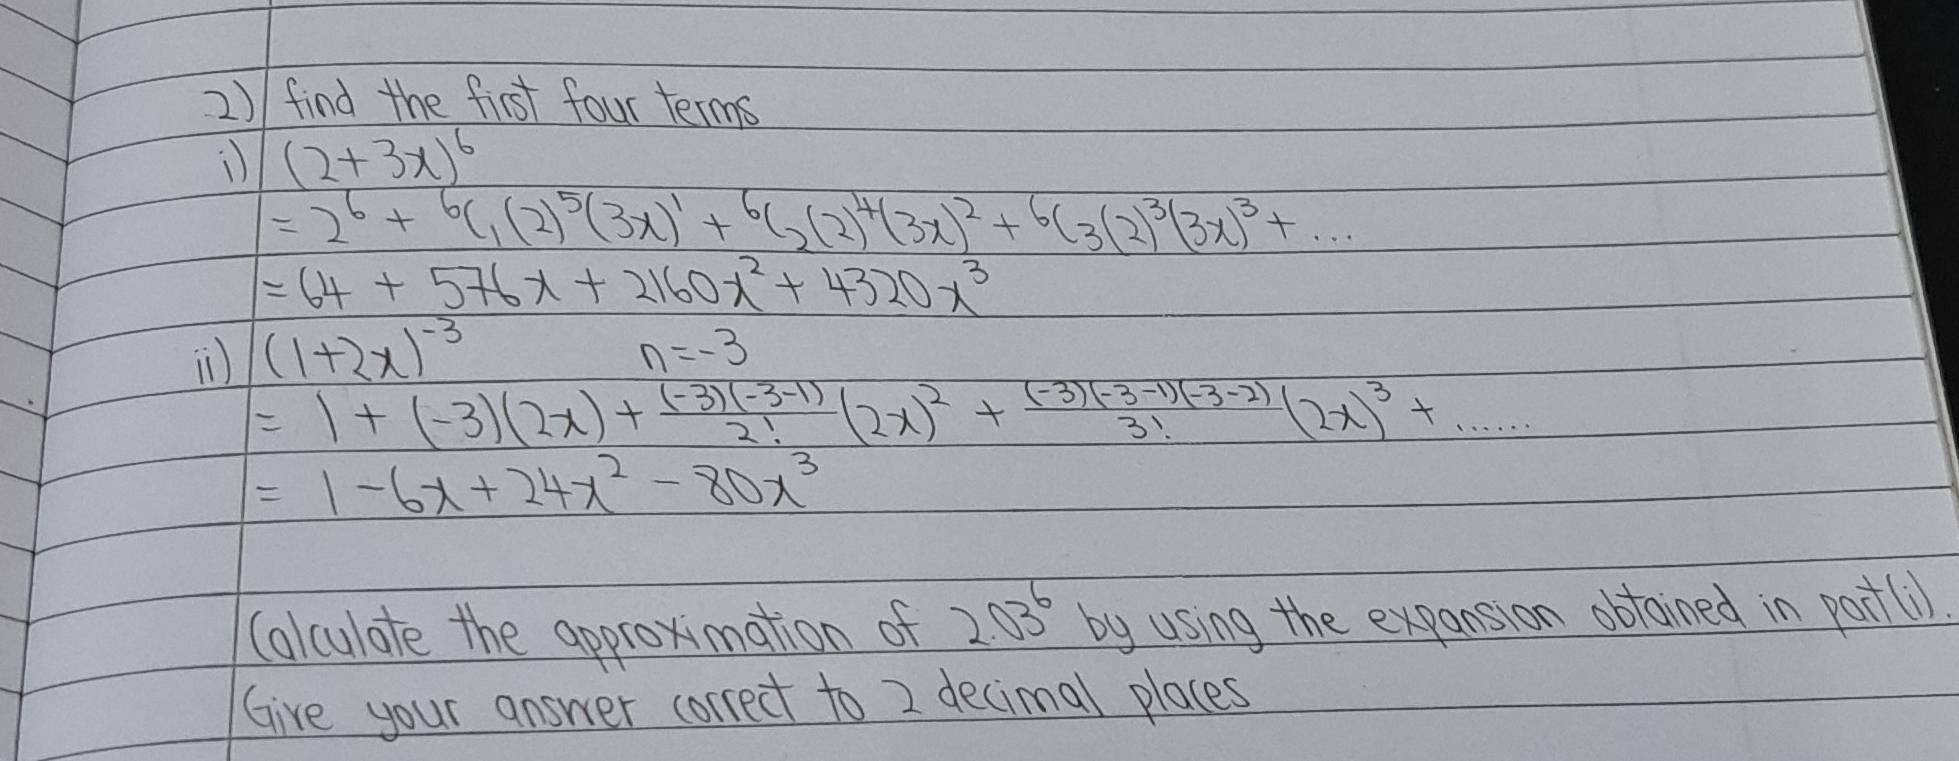 2) find the first four terms
i) (2+3x)⁶
= 2⁶ + ⁶C₁(2)⁵(3x)¹ + ⁶C₂(2)⁴(3x)² + ⁶C₃(2)³(3x)³ + ...
= 64 + 576x + 2160x² + 4320x³
ii) (1+2x)⁻³ n=-3
= 1 + (-3)(2x) + (-3)(-3-1)/2! (2x)² + (-3)(-3-1)(-3-2)/3! (2x)³ + ......
= 1 - 6x + 24x² - 80x³
Calculate the approximation of 2.03⁶ by using the expansion obtained in part(i).
Give your answer correct to 2 decimal places